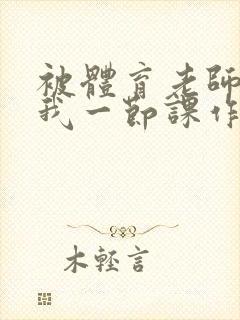 被體育老師
我一節課作
木輕言